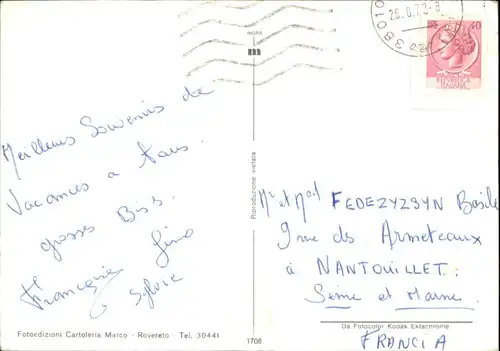 38010
26.8.7
40
REPUBBLICA
ITALIANA
INGRA
Meilleurs Souvenirs de
Vacances a tous.
grosses Bises.
Françoise Gino
Sylvie
Riproduzione vietata
Mr et Mme FEDEZYZSYN Basile
9 rue des Armeteaux
à NANTOUILLET.
Seine et Marne.
FRANCIA
Fotoedizioni Cartoleria Marco - Rovereto - Tel. 30441
1708
Da Fotocolor Kodak Ektachrome